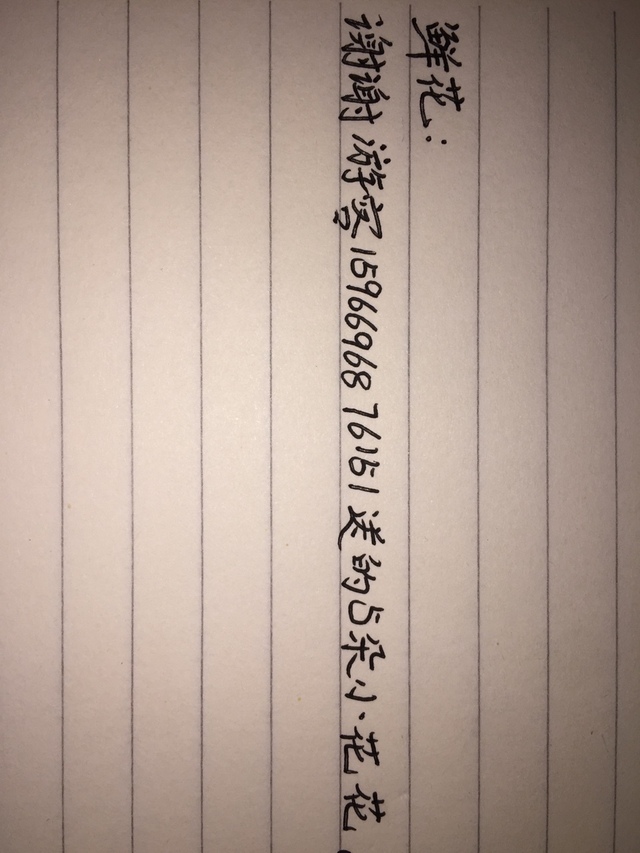 鲜花：
谢谢游客1596696876151送的5朵小花花。